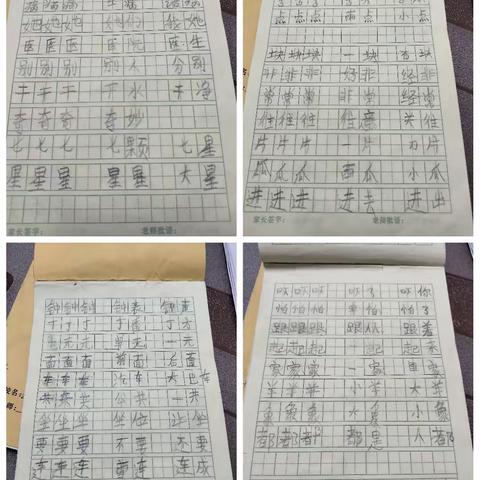 病病病 生病
她她 她们 她
医医医 医院 医生
别别别 别人 分别
干干干 干水 干净
奇奇奇 奇妙
七七七 七颗 七星
星星星 星星 大星
家长签字: 老师批语:
点点点 雨点 小点
块块块 一块 石块
非非非 好非 经非
常常常 非常 经常
往往往 往意 关往
片片片 一片 刀片
瓜瓜瓜 西瓜 小瓜
进进进 进去 进出
家长签字: 老师批语:
钟钟钟 钟表 钟声
丁丁丁
元元元 单元 一元
面面面 前面 右面
车车车 汽车 大巴车
共共共 公共 一共
坐坐坐 坐位 让坐
要要要 不要 还要
连连连 连 连成
吓吓吓 吓了 吓你
怕怕怕 害怕 怕了
跟跟跟 跟从 跟着
起起起 一起 起来
家家家 一家 自家
羊羊羊 小羊 大羊
象象象 大象 小象
都都都 都是 人都